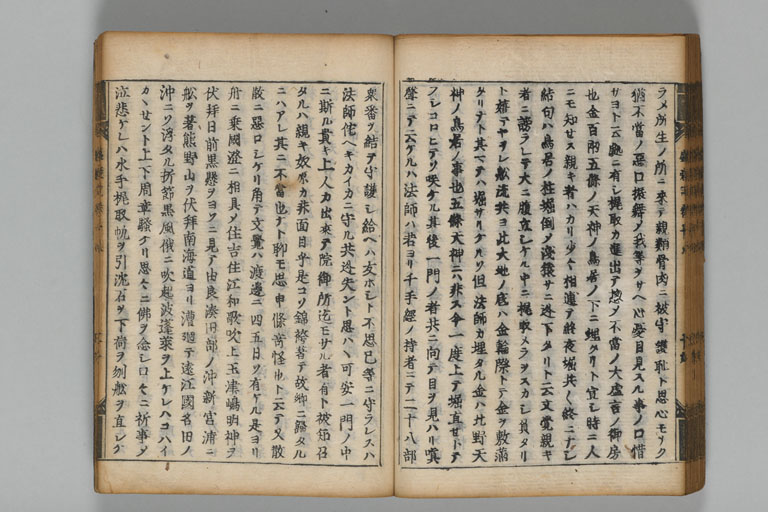 ラメ所生ノ所ニ来テ親類骨肉ニ被守護恥ト思心モナク
猶不當ノ惡口振舞ノ我等ヲサヘ心憂目見スル事ノ口惜
サヨト云處ニ有シ梶取カ進出テ抑ノ不當ノ大虚言ノ御房
也金百両五條ノ天神ノ鳥居ノ下ニ埋タリト宣シ時ニ人
ニモ知セス親キ者ハカリ少々相連テ終夜堀共々終ニナシ
結句ハ鳥居ノ柱堀倒メ浅猿サニ迯下タリト云文覺親キ
者ニ謗ラレテ大ニ腹立シケルカ中ニ梶取メラヲスカシ負タリ
ト嬉テヤヲレ舩流共ヨ此大地ノ底ハ金輪際トテ金ヲ敷満
タリナト其マテハ堀サリケルソ但法師カ埋タル金ハ北野天
神ノ鳥居ノ事也五條天神ニハ非ス今一度上テ堀直セナトテ
ノレコロヒテソ咲ケル其後一門ノ者共ニ向テ目ヲ見ハリ嗔
聲ニテ云ケルハ法師ハ若ヨリ千手經ノ持者ニテ二十八部
衆番ヲ結テ守護シ給ヘハ女ホシト不思已等ニ守ラレスハ
法師侘ヘキカイカニ守ル共迯失ント思ハヽ可安一門ノ中
ニ斯ル貴キ上人カ出来テ院御所迄モサル者有ト被知召
タルハ親キ奴原カ非面目乎是コソ錦袴着テ故郷ニ歸タル
ニハアレ其ニ不當也ナト聊モ思申條奇怪也ト云テ又散
散ニ惡口シケリ角テ文覺ハ渡邊ニ四五日ソ有ケル是ヨリ
舟ニ乗國澄ニ相具メ住吉住江和歌吹上玉津嶋明神ヲ
伏拜日前黒懸ヲヨソニ見テ由良湊田部ノ沖新宮浦ニ
舩ヲ着熊野山ヲ伏拜南海道ヨリ漕廻テ遠江國名田ノ
沖ニソ浮タル折節黒風俄ニ吹起波蓬莱ヲ上ケレハコハイ
カヽセント上下周章騒ケリ思々ニ佛ヲ念シ口々ニ祈事メ
泣悲ケレハ水手梶取帆ヲ引沈石ヲ下荷ヲ刎舩ヲ直シケ